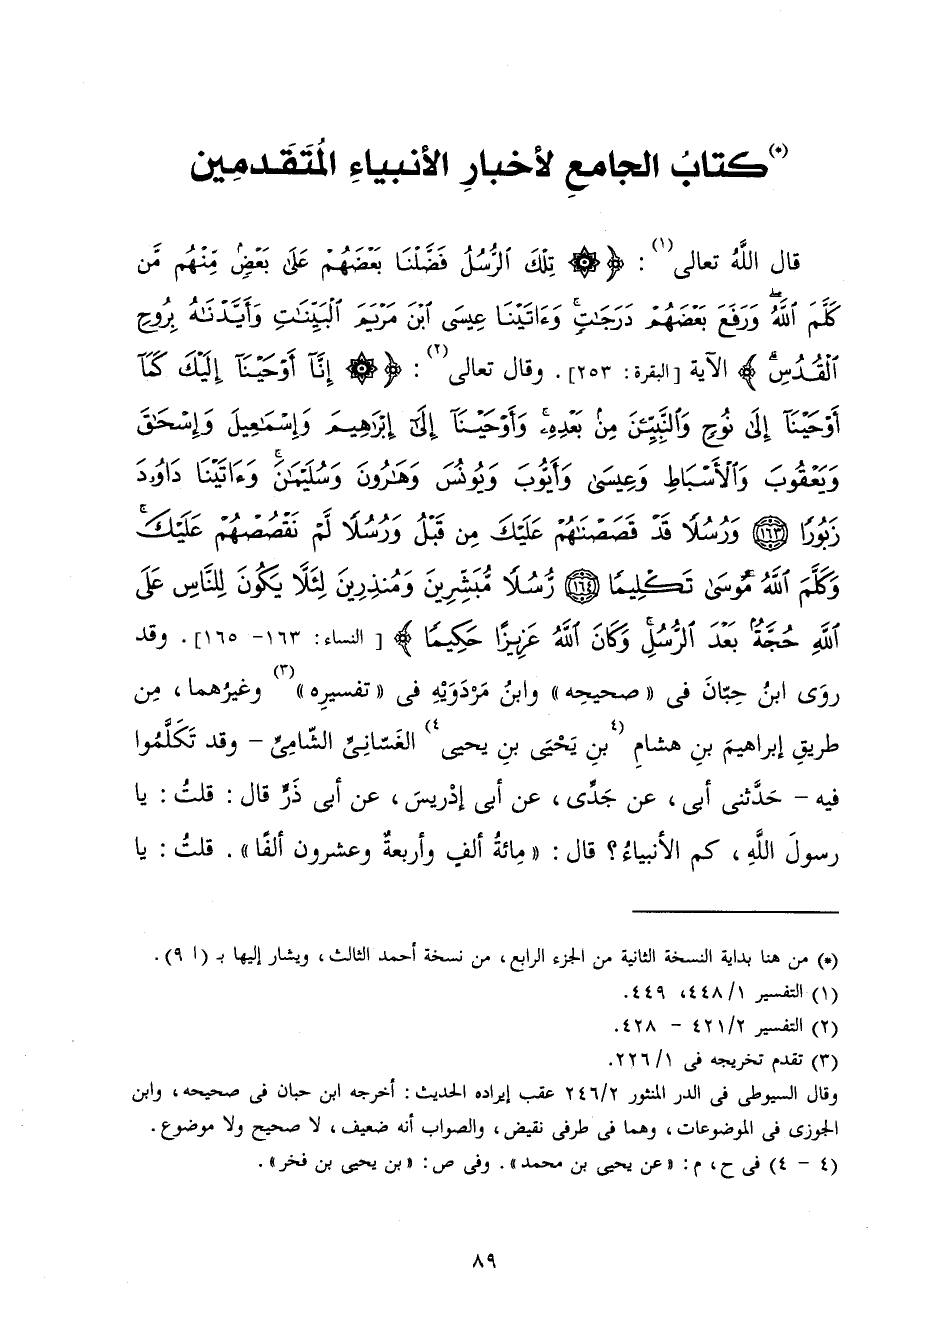 (*) كتابُ الجامعِ لأخبارِ الأنبياءِ المُتَقَدمِين
قال اللَّهُ تعالى(١) : ﴿ ۞ تِلْكَ ٱلرُّسُلُ فَضَّلْنَا بَعْضَهُمْ عَلَىٰ بَعْضٍۘ مِّنْهُم مَّن
كَلَّمَ ٱللَّهُۖ وَرَفَعَ بَعْضَهُمْ دَرَجَٰتٍۚ وَءَاتَيْنَا عِيسَى ٱبْنَ مَرْيَمَ ٱلْبَيِّنَٰتِ وَأَيَّدْنَٰهُ بِرُوحِ
ٱلْقُدُسِۗ ﴾ الآية [البقرة: ٢٥٣]. وقال تعالى(٢) : ﴿ ۞ إِنَّآ أَوْحَيْنَآ إِلَيْكَ كَمَآ
أَوْحَيْنَآ إِلَىٰ نُوحٍ وَٱلنَّبِيِّۦنَ مِنۢ بَعْدِهِۦۚ وَأَوْحَيْنَآ إِلَىٰٓ إِبْرَٰهِيمَ وَإِسْمَٰعِيلَ وَإِسْحَٰقَ
وَيَعْقُوبَ وَٱلْأَسْبَاطِ وَعِيسَىٰ وَأَيُّوبَ وَيُونُسَ وَهَٰرُونَ وَسُلَيْمَٰنَۚ وَءَاتَيْنَا دَاوُۥدَ
زَبُورًا ١٦٣ وَرُسُلًا قَدْ قَصَصْنَٰهُمْ عَلَيْكَ مِن قَبْلُ وَرُسُلًا لَّمْ نَقْصُصْهُمْ عَلَيْكَۚ
وَكَلَّمَ ٱللَّهُ مُوسَىٰ تَكْلِيمًا ١٦٤ رُّسُلًا مُّبَشِّرِينَ وَمُنذِرِينَ لِئَلَّا يَكُونَ لِلنَّاسِ عَلَى
ٱللَّهِ حُجَّةٌۢ بَعْدَ ٱلرُّسُلِۚ وَكَانَ ٱللَّهُ عَزِيزًا حَكِيمًا ﴾ [ النساء: ١٦٣- ١٦٥]. وقد
روَى ابنُ حِبّانَ فى « صحيحِه» وابنُ مَرْدَوَيْهِ فى « تفسيرِه»(٣) وغيرُهما ، مِن
طريقِ إبراهيمَ بنِ هشامِ (٤بنِ يَحْيَى بنِ يحيى٤) الغَسّانِىِّ الشّامِىِّ - وقد تَكَلَّمُوا
فيه - حَدَّثنى أبى ، عن جَدِّى ، عن أبى إدْريسَ ، عن أبى ذَرٍّ قال : قلتُ : يا
رسولَ اللَّهِ ، كم الأنبياءُ؟ قال : « مِائةُ ألفٍ وأربعةٌ وعشرون ألفًا» . قلتُ : يا
(*) من هنا بداية النسخة الثانية من الجزء الرابع ، من نسخة أحمد الثالث ، ويشار إليها بـ (أ ٩).
(١) التفسير ٤٤٨/١، ٤٤٩.
(٢) التفسير ٤٢١/٢ - ٤٢٨.
(٣) تقدم تخريجه فى ٢٢٦/١.
وقال السيوطى فى الدر المنثور ٢٤٦/٢ عقب إيراده الحديث : أخرجه ابن حبان فى صحيحه ، وابن
الجوزى فى الموضوعات ، وهما فى طرفى نقيض ، والصواب أنه ضعيف ، لا صحيح ولا موضوع .
(٤ - ٤) فى ح ، م : «عن يحيى بن محمد» . وفى ص : «بن يحيى بن فخر» .
٨٩